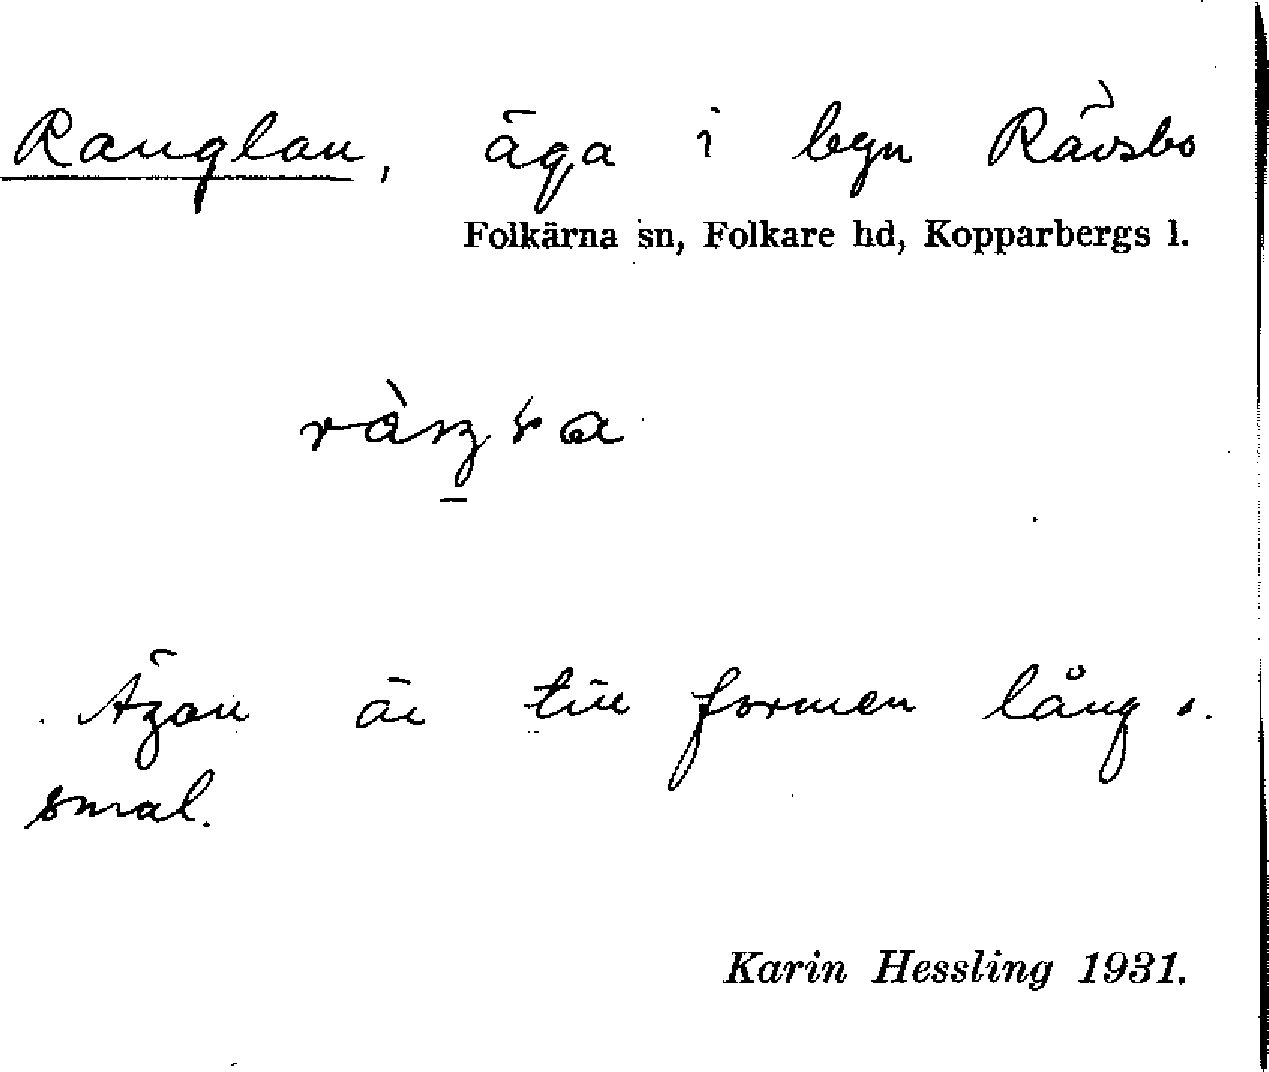 Ranglan, äga i byn Rävsbo
Folkärna sn, Folkare hd, Kopparbergs l.
Ägan är till formen lång o.
smal.
Karin Hessling 1931.